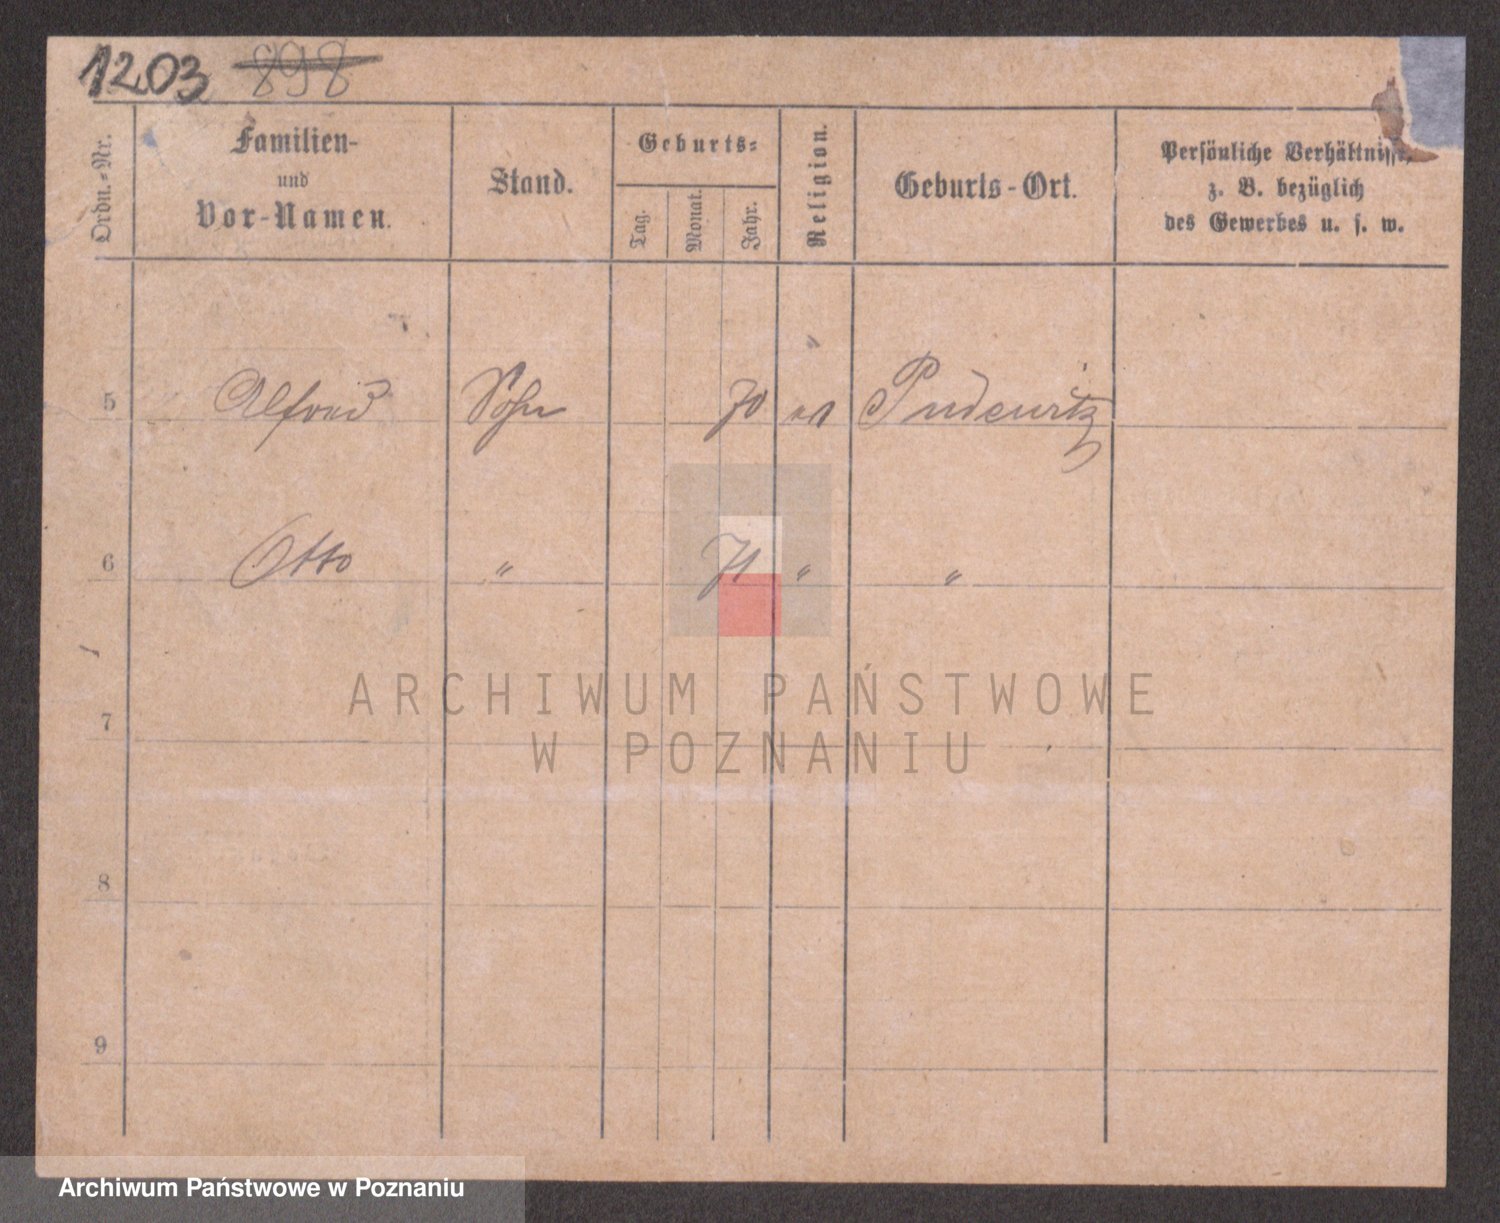 1203 898
Ordn.-Nr.
Familien-
und
Vor-Namen.
Stand.
Geburts-
Tag.
Monat.
Jahr.
Religion.
Geburts-Ort.
Persönliche Verhältnisse
z. B. bezüglich
des Gewerbes u. s. w.
"
5 Alfred Sohn 70 ev Pudewitz
6 Otto " 71 " "
ARCHIWUM PAŃSTWOWE
W POZNANIU
7
8
9
Archiwum Państwowe w Poznaniu